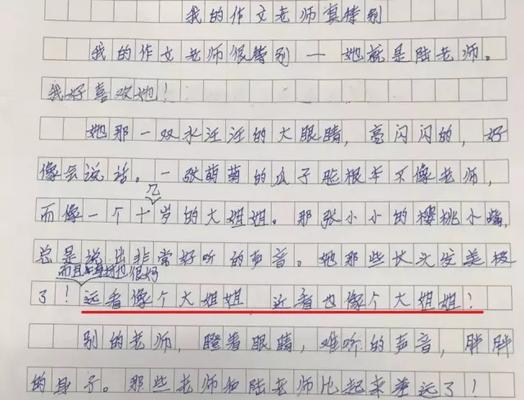 我的作文老师真特别
我的作文老师很特别——她就是陆老师。
我好喜欢她！
她那一双水汪汪的大眼睛，亮闪闪的，好
像会说话。一张萌萌的瓜子脸根本不像老师，
几
而像一个十岁的大姐姐。那张小小的樱桃小嘴，
总是说出非常好听的声音。她那些长头发美极
而且身材也很好
了！远看像个大姐姐 近看也像个大姐姐！
别的老师，瞪着眼睛，难听的声音，胖胖
的身子。那些老师和陆老师比起来差远了！